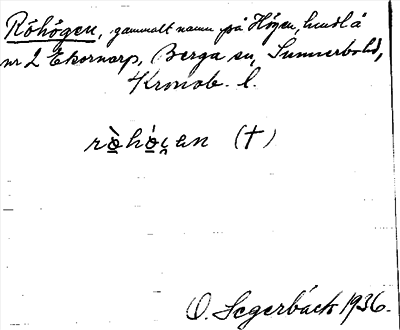 Röhögen, gammalt namn på Högen, hmdl å
nr 2 Ekornarp, Berga sn, Sunnerbo hd,
Kronob. l.
rö̀hö́gen (†)
O. Segerbäck 1936.